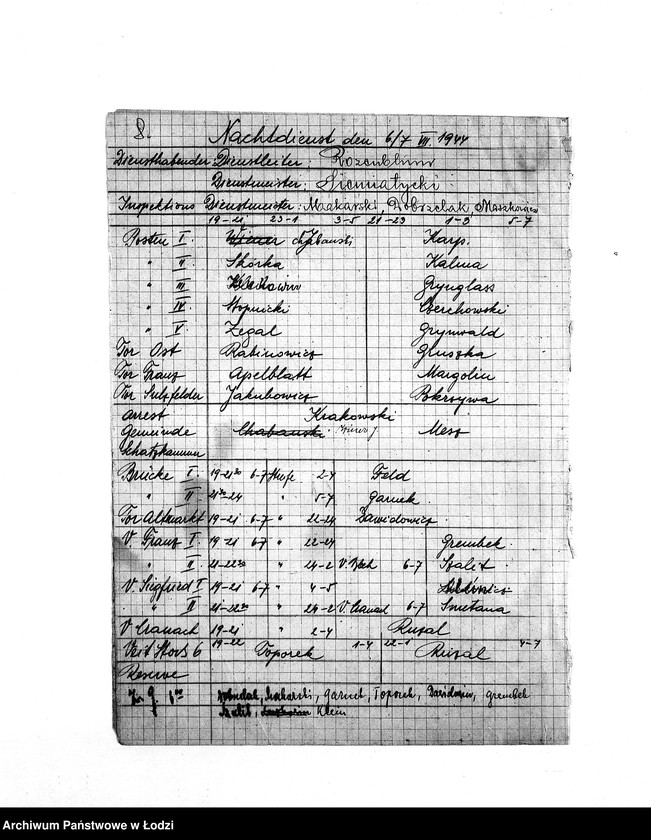 8.
Nachtdienst den 6/7 VII. 1944
Diensthabender Dienstleiter: Rozenblum
Dienstmeister: Siemiatycki
Inspektions Dienstmeister: Makarski, Dobrzelak, Moszkowicz
19-21 23-1 3-5 21-23 1-3 5-7
Posten I. Karp.
" II Skórka Kalma
" III Grynglass
" IV. Stopnicki Czerchowski
" V. Zegal Grynwald
Tor Ost Rabinowicz Gluszka
Tor Franz Apelblatt Margolin
Tor Sulzfelder Jakubowicz Pokrzywa
arrest Krakowski
Gemeinde Chabanski Mesz
Schatzkammer
Brücke I. 19-21³⁰ 6-7 Streife 2-4 Feld
" II 21³⁰-24 " 5-7 Garnek.
Tor Altmarkt 19-21 6-7 " 22-24 Dawidowicz
V. Franz I 19-21 6-7 " 22-24 Grembek.
" II 21-22³⁰ " 24-2 6-7 Szalit.
V. Siegfried I 19-21 6-7 " 4-5
" II 21-22³⁰ " 24-2 V. Cranach 6-7 Smetana
V. Cranach 19-21 " 2-4 Rusal
19-22 Toporek 1-4 22-1 Rusal 4-7
Reserve
Makarski, Garnek, Toporek, Dawidowicz, Grembek
Szalit, Klein
Archiwum Państwowe w Łodzi